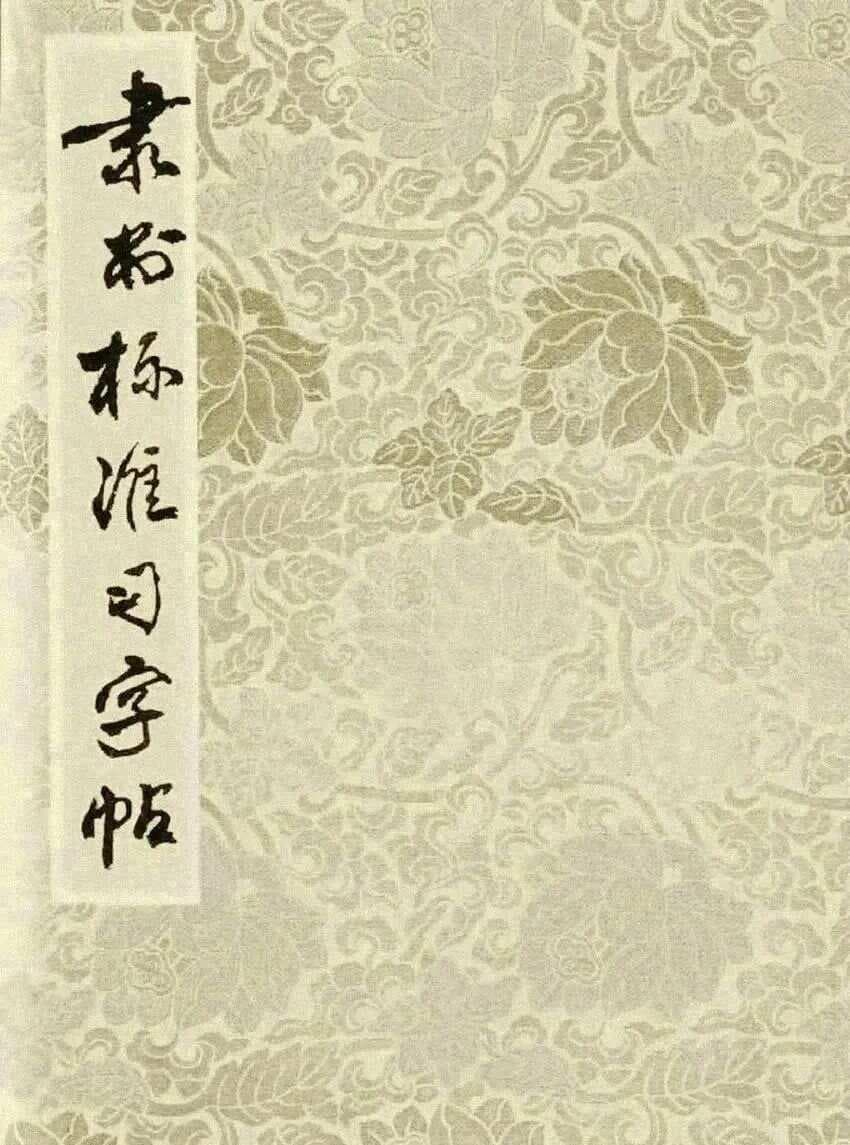 隶标准习字帖